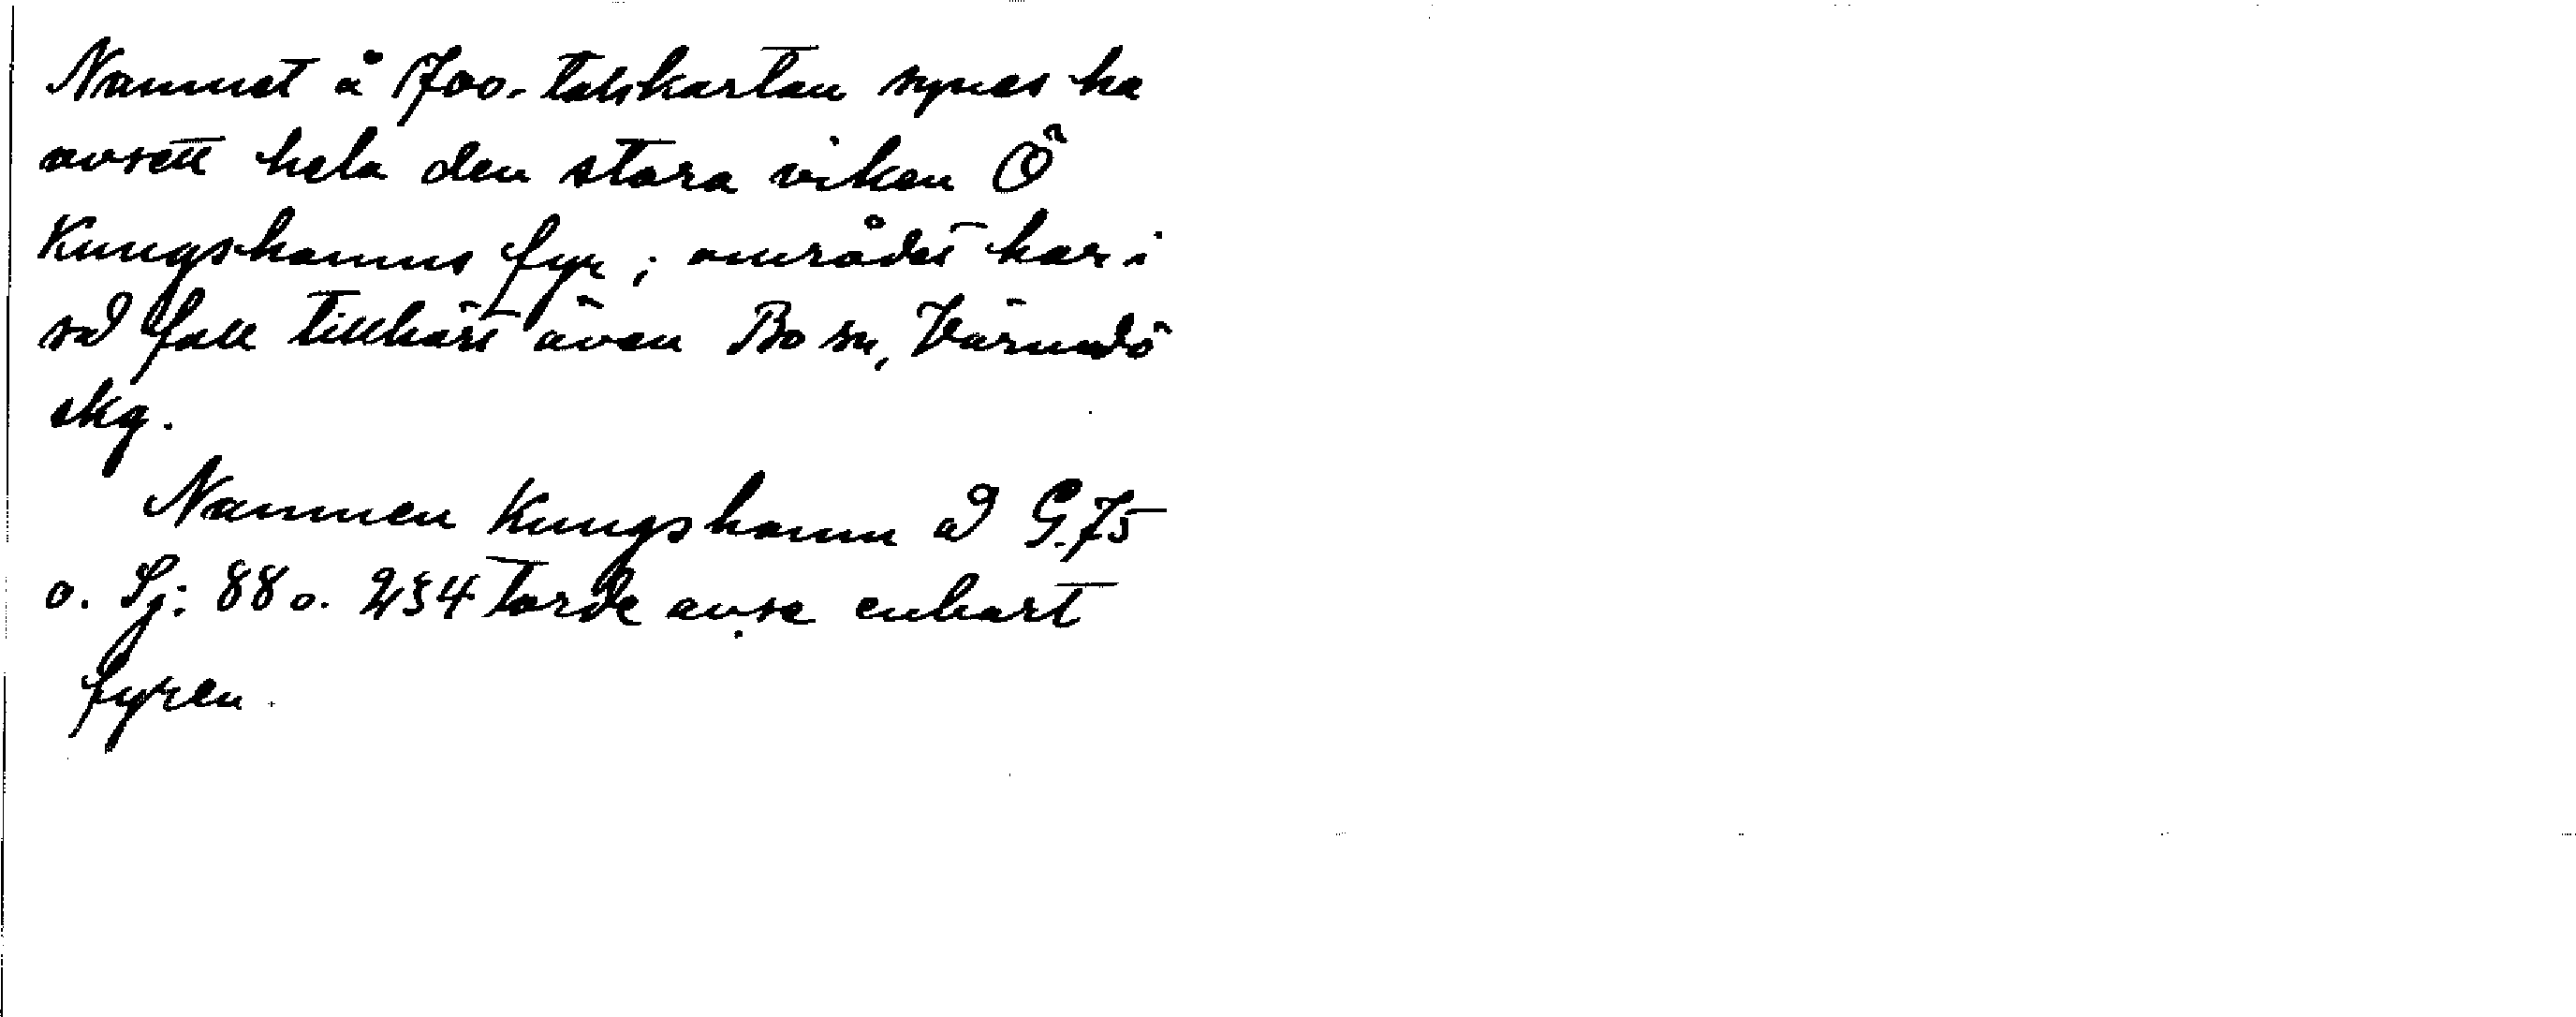 Namnet å 1700-talskartan synes ha
avsett hela den stora viken Ö
Kungshamns fyr; området har i
så fall tillhört även Bo sn, Värmdö
skg.
Namnen Kungshamn å G. 75
o. Sj: 88 o. 234 torde avse enbart
fyren.